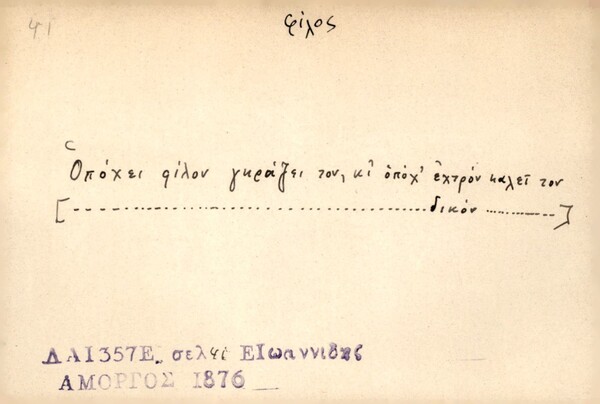 41
φίλος
Ὁπόχει φίλον γκράζει τον, κῖ ὁπόχ' ἐχτρόν καλεῖ τον
[---------------------δικόν---------]
ΔΑΙ357Ε. σελ41 ΕΙωαννιδης
ΑΜΟΡΓΟΣ 1876